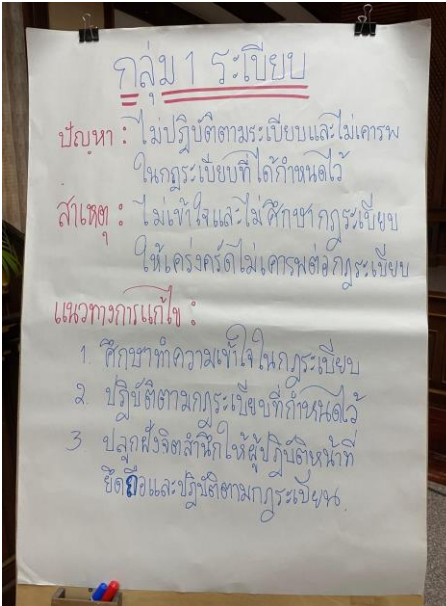 กลุ่ม 1 ระเบียบ
ปัญหา : ไม่ปฏิบัติตามระเบียบและไม่เคารพ
ในกฎระเบียบที่ได้กำหนดไว้
สาเหตุ : ไม่เข้าใจและไม่ศึกษากฎระเบียบ
ให้เคร่งคร์ดไม่เคารพต่อกฎระเบียบ
แนวทางการแก้ไข :
1. ศึกษาทำความเข้าใจในกฎระเบียบ
2. ปฏิบัติตามกฎระเบียบที่กำหนดไว้
3. ปลูกฝังจิตสำนึกให้ผู้ปฏิบัติหน้าที่
ยึดถือและปฏิบัติตามกฎระเบียบ.